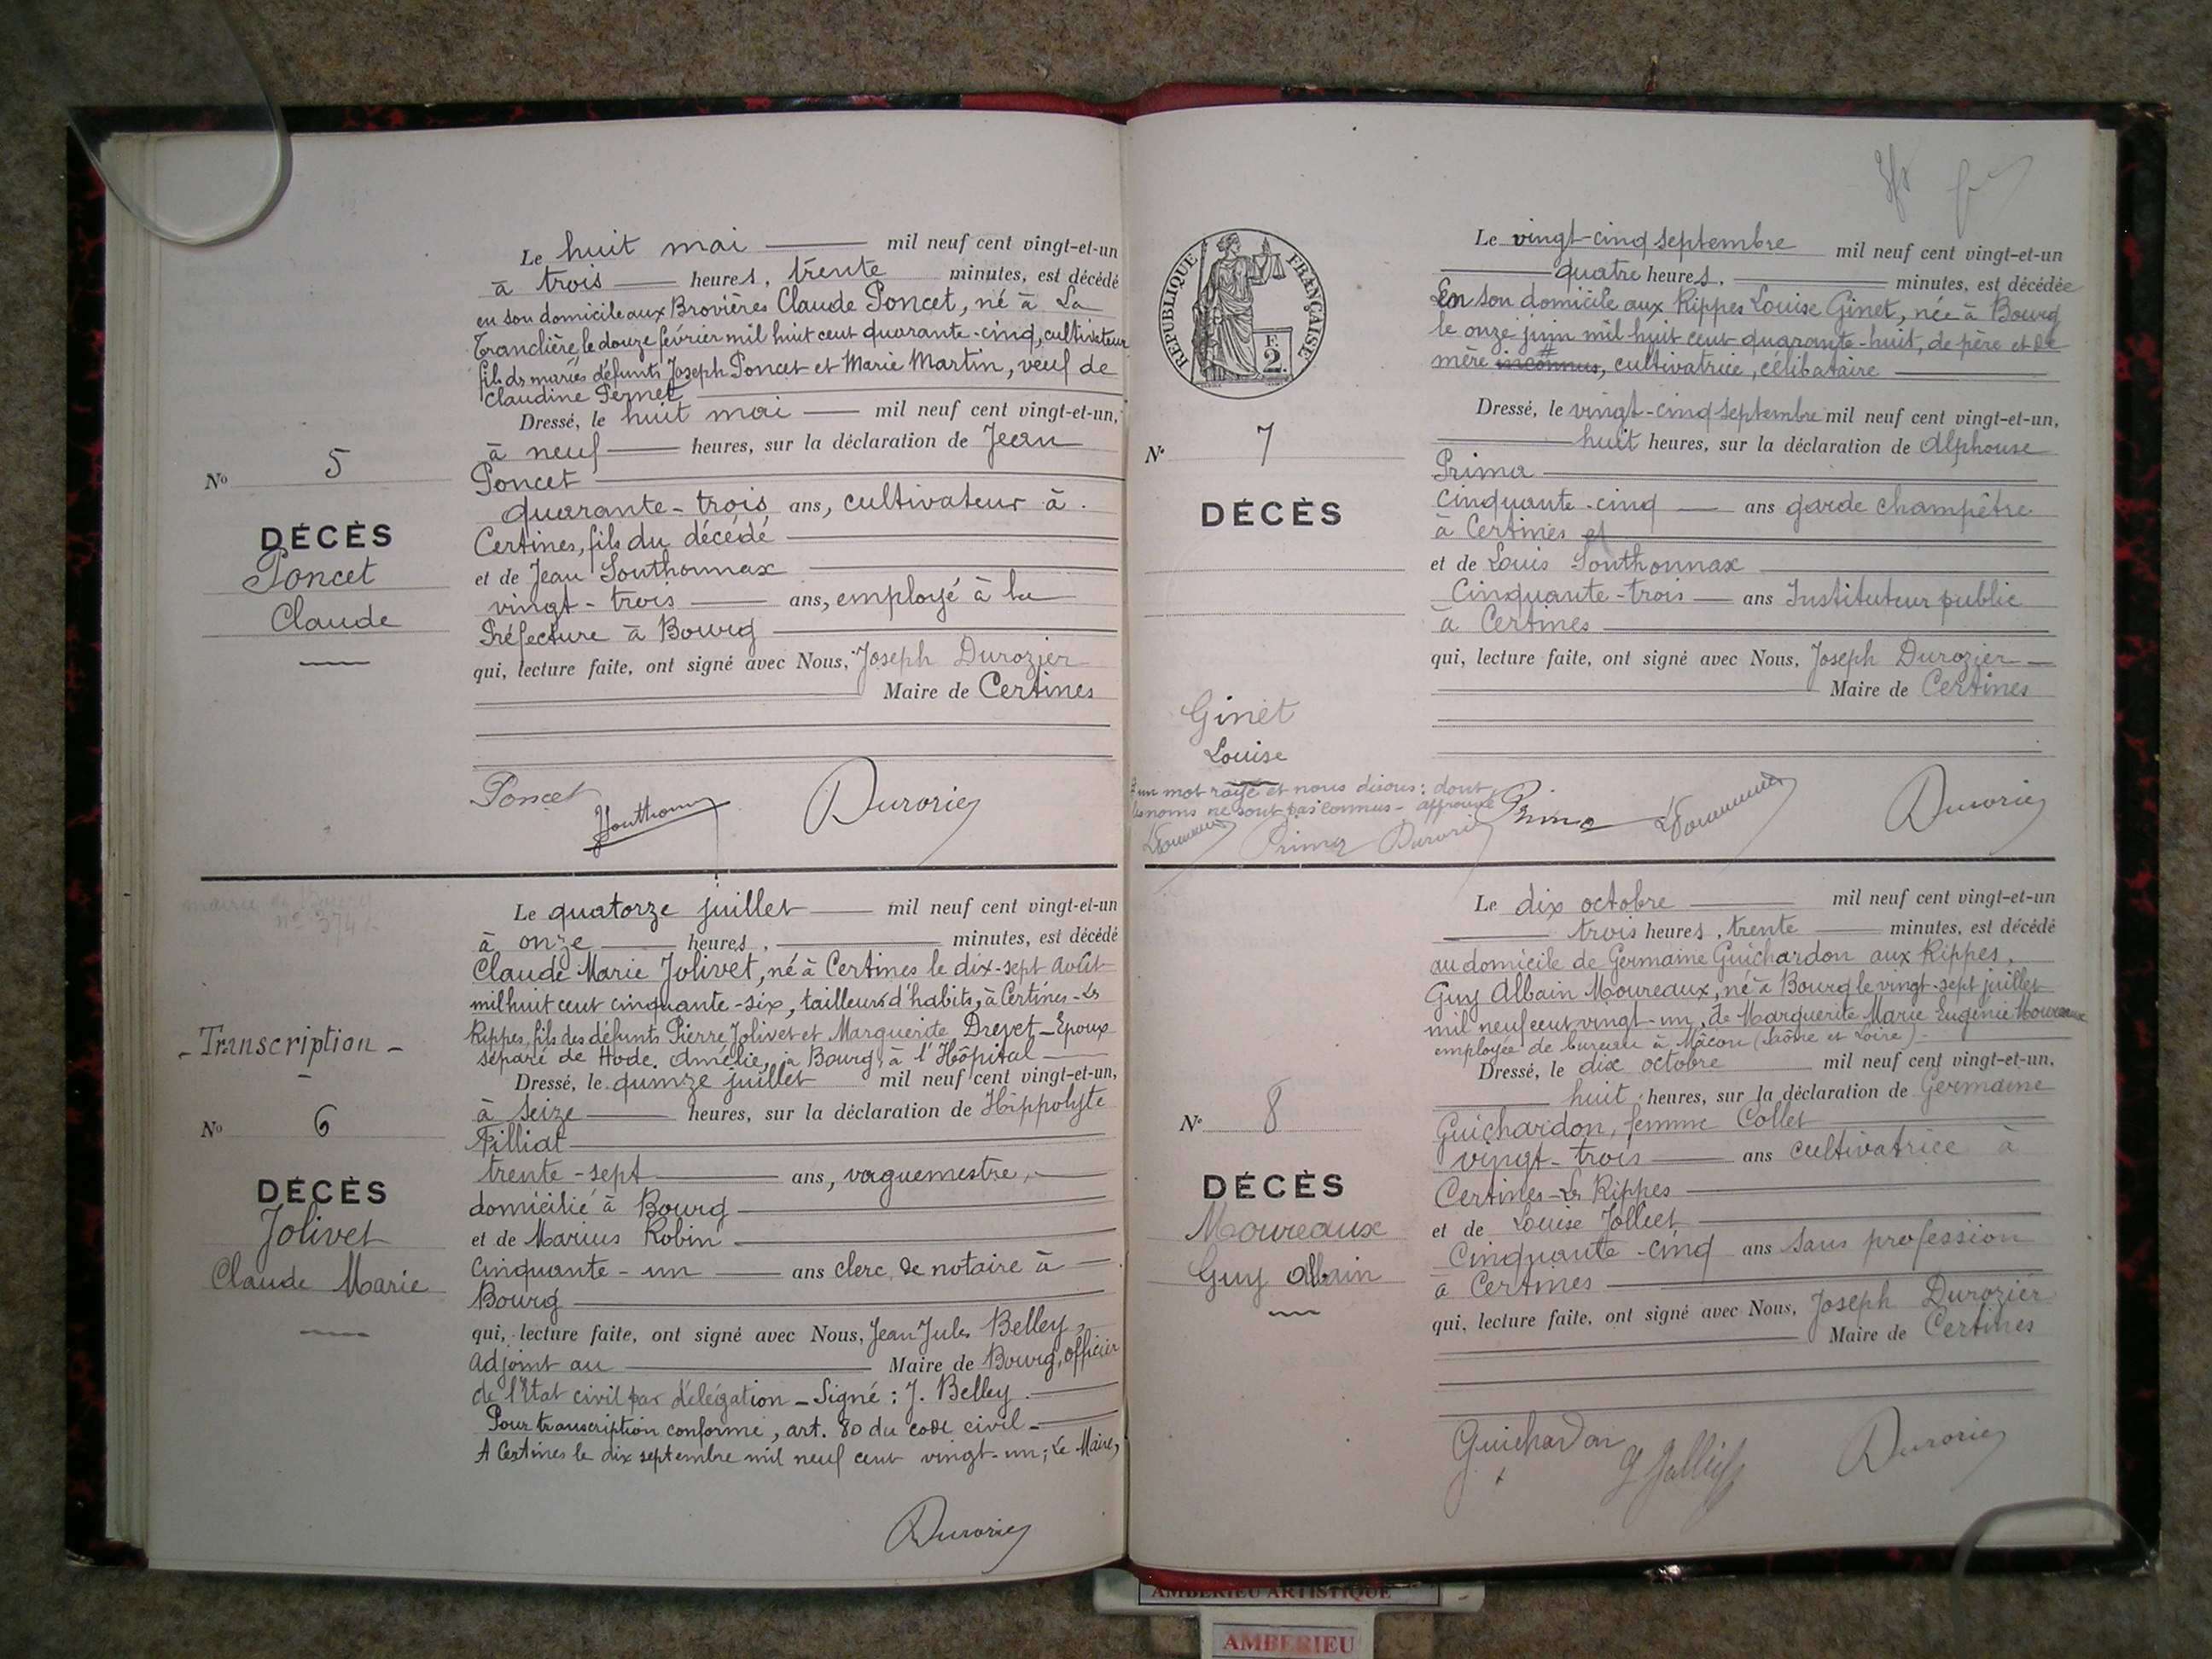 Le huit mai mil neuf cent vingt-et-un
à trois heures, trente minutes, est décédé
en son domicile aux Brovières Claude Poncet, né à La
Tranclière le douze février mil huit cent quarante-cinq, cultivateur
fils des mariés défunts Joseph Poncet et Marie Martin, veuf de
Claudine Pernet
Dressé, le huit mai mil neuf cent vingt-et-un,
à neuf heures, sur la déclaration de Jean
Poncet
quarante-trois ans, cultivateur à
Certines, fils du décédé
et de Jean Southonnax
vingt-trois ans, employé à la
Préfecture à Bourg
qui, lecture faite, ont signé avec Nous, Joseph Durozier
Maire de Certines
No 5
DÉCÈS
Poncet
Claude
Poncet
Durozier
mairie de Bourg
n° 374
Transcription
No 6
DÉCÈS
Jolivet
Claude Marie
Le quatorze juillet mil neuf cent vingt-et-un
à onze heures, minutes, est décédé
Claude Marie Jolivet, né à Certines le dix-sept Août
mil huit cent cinquante-six, tailleur d'habits, à Certines-Les
Rippes, fils des défunts Pierre Jolivet et Marguerite Drevet - Epoux
séparé de Hode. Amélie, à Bourg, à l'Hôpital
Dressé, le quinze juillet mil neuf cent vingt-et-un,
à seize heures, sur la déclaration de Hippolyte
Filliat
trente-sept ans, vaguemestre,
domicilié à Bourg
et de Marius Robin
Cinquante-un ans clerc de notaire à
Bourg
qui, lecture faite, ont signé avec Nous, Jean Jules Belley,
adjoint au Maire de Bourg, officier
de l'Etat civil par délégation - Signé : J. Belley
Pour transcription conforme, art. 80 du code civil -
A Certines le dix septembre mil neuf cent vingt-un; Le Maire,
Durozier
RÉPUBLIQUE FRANÇAISE
2 F.
Le vingt-cinq septembre mil neuf cent vingt-et-un
quatre heures, minutes, est décédée
En son domicile aux Rippes Louise Ginet, née à Bourg
le onze juin mil huit cent quarante-huit, de père et de
mère inconnus, cultivatrice, célibataire
Dressé, le vingt-cinq septembre mil neuf cent vingt-et-un,
huit heures, sur la déclaration de Alphonse
Prima
cinquante-cinq ans garde champêtre
à Certines et
et de Louis Southonnax
Cinquante-trois ans Instituteur public
à Certines
qui, lecture faite, ont signé avec Nous, Joseph Durozier
Maire de Certines
N° 7
DÉCÈS
Ginet
Louise
# un mot rayé et nous disons : dont
les noms ne sont pas connus - approuvé
Prima Durozier
Prima
Durozier
Le dix octobre mil neuf cent vingt-et-un
trois heures, trente minutes, est décédé
au domicile de Germaine Guichardon aux Rippes,
Guy Albain Moureaux, né à Bourg le vingt-sept juillet
mil neuf cent vingt-un, de Marguerite Marie Eugénie Moureaux
employée de bureau à Mâcon (Saône et Loire)
Dressé, le dix octobre mil neuf cent vingt-et-un,
huit heures, sur la déclaration de Germaine
Guichardon, femme Collet
vingt-trois ans cultivatrice à
Certines-Les Rippes
et de Louise Jolliet
Cinquante-cinq ans sans profession
à Certines
qui, lecture faite, ont signé avec Nous, Joseph Durozier
Maire de Certines
N° 8
DÉCÈS
Moureaux
Guy Albain
Guichardon
Durozier
AMBERIEU ARTISTIQUE
AMBERIEU